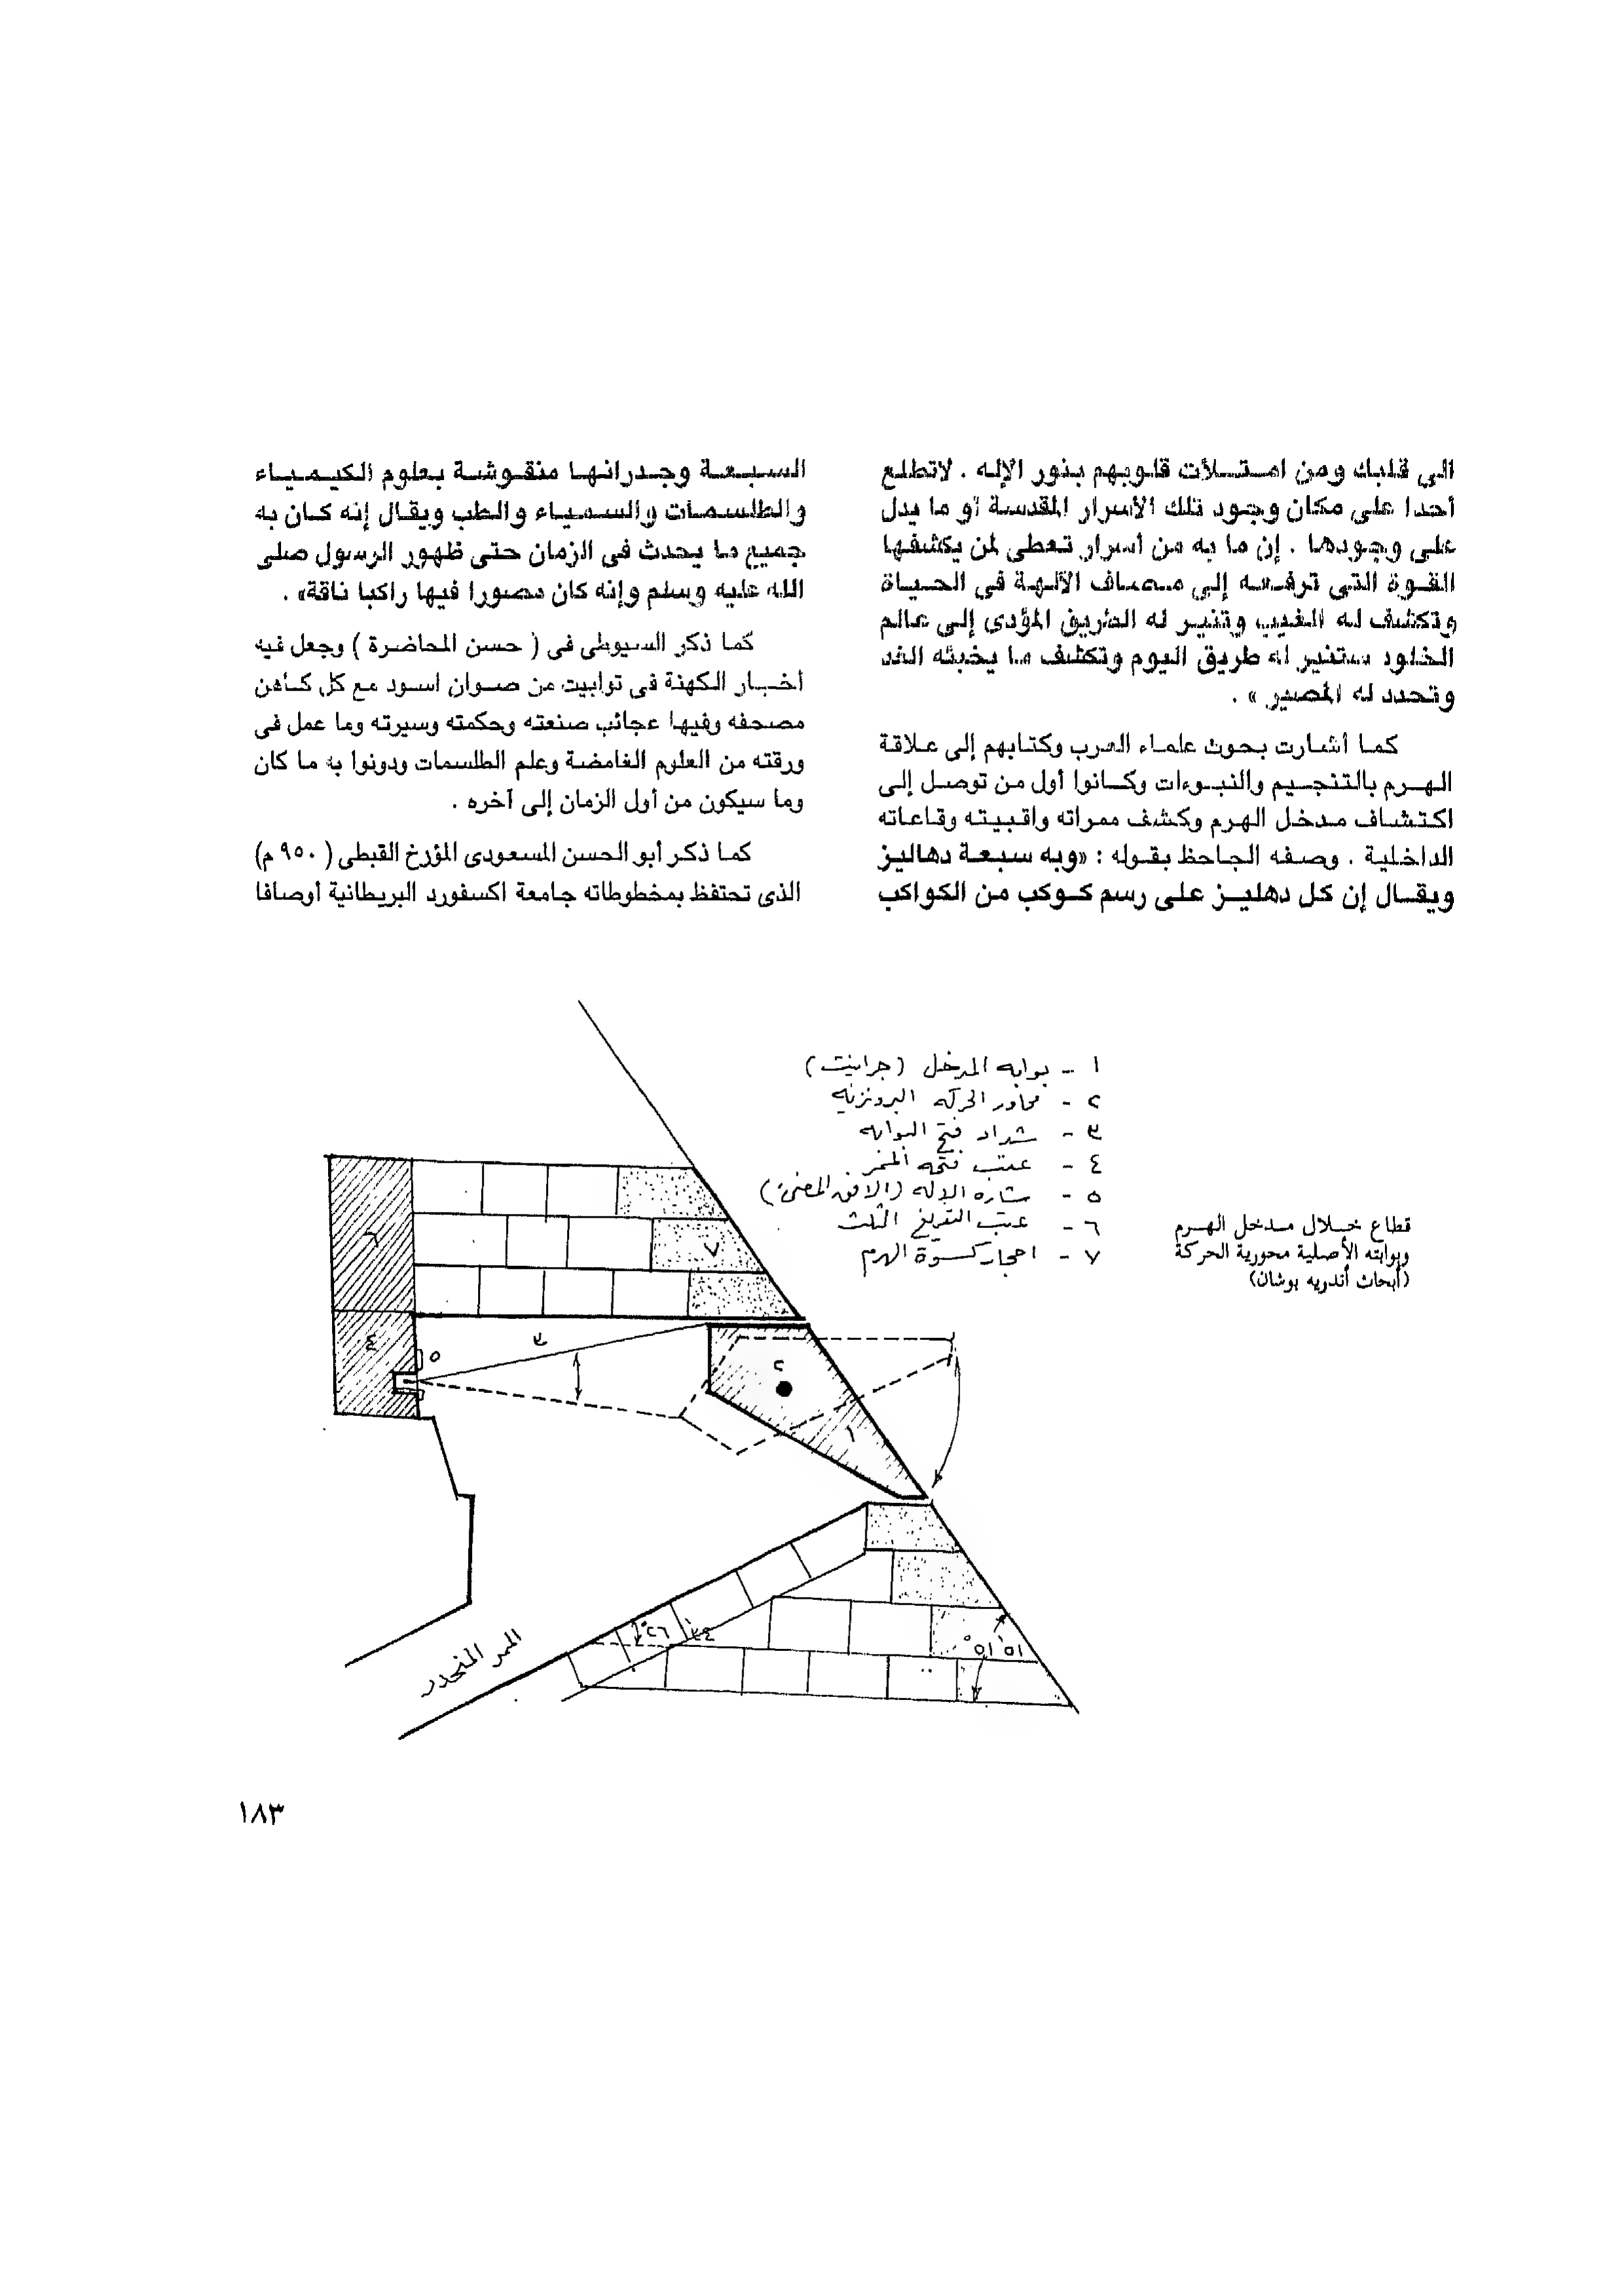 الى قلبك ومن امتلأت قلوبهم بنور الإله . لاتطلع
أحدا على مكان وجود تلك الأسرار المقدسة أو ما يدل
على وجودها . إن ما به من أسرار تعطى لمن يكشفها
القوة التى ترفعه إلى مصاف الآلهة فى الحياة
وتكشف له الغيب وتنير له الطريق المؤدى إلى عالم
الخلود ستنير له طريق اليوم وتكشف ما يخبئه الغد
وتحدد له المصير » .
كما أشارت بحوث علماء العرب وكتابهم إلى علاقة
الهرم بالتنجيم والنبوءات وكانوا أول من توصل إلى
اكتشاف مدخل الهرم وكشف ممراته واقبيته وقاعاته
الداخلية . وصفه الجاحظ بقوله : «وبه سبعة دهاليز
ويقال إن كل دهليز على رسم كوكب من الكواكب
السبعة وجدرانها منقوشة بعلوم الكيمياء
والطلسمات والسمياء والطب ويقال إنه كان به
جميع ما يحدث فى الزمان حتى ظهور الرسول صلى
الله عليه وسلم وإنه كان مصورا فيها راكبا ناقة» .
كما ذكر السيوطى فى ( حسن المحاضرة ) وجعل فيه
أخبار الكهنة فى توابيت من صوان اسود مع كل كاهن
مصحفه وفيها عجائب صنعته وحكمته وسيرته وما عمل فى
ورقته من العلوم الغامضة وعلم الطلسمات ودونوا به ما كان
وما سيكون من أول الزمان إلى آخره .
كما ذكر أبو الحسن المسعودى المؤرخ القبطى ( ٩٥٠ م)
الذى تحتفظ بمخطوطاته جامعة اكسفورد البريطانية أوصافا
١ - بوابه المدخل (جرانيت)
٢ - محاور الحركه البرونزيه
٣ - شداد فتح البوابه
٤ - عتب فتحه الممر
٥ - شاره الاله (الافق المضئ)
٦ - عتب التفريغ المثلث
٧ - احجار كسوة الهرم
قطاع خلال مدخل الهرم
وبوابته الأصلية محورية الحركة
(أبحاث أندريه بوشان)
٦
٧
٤
٥
٣
٢
١
٢٦° ٣٤'
٥١° ٥١'
الممر المنحدر
١٨٣